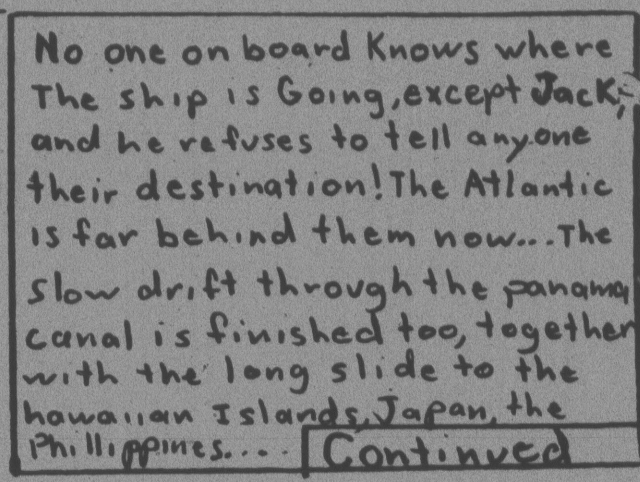 No one on board Knows where
The ship is Going, except Jack,
and he refuses to tell anyone
their destination! The Atlantic
is far behind them now... The
slow drift through the panama
canal is finished too, together
with the long slide to the
hawaiian Islands, Japan, the
Phillippines....
Continued